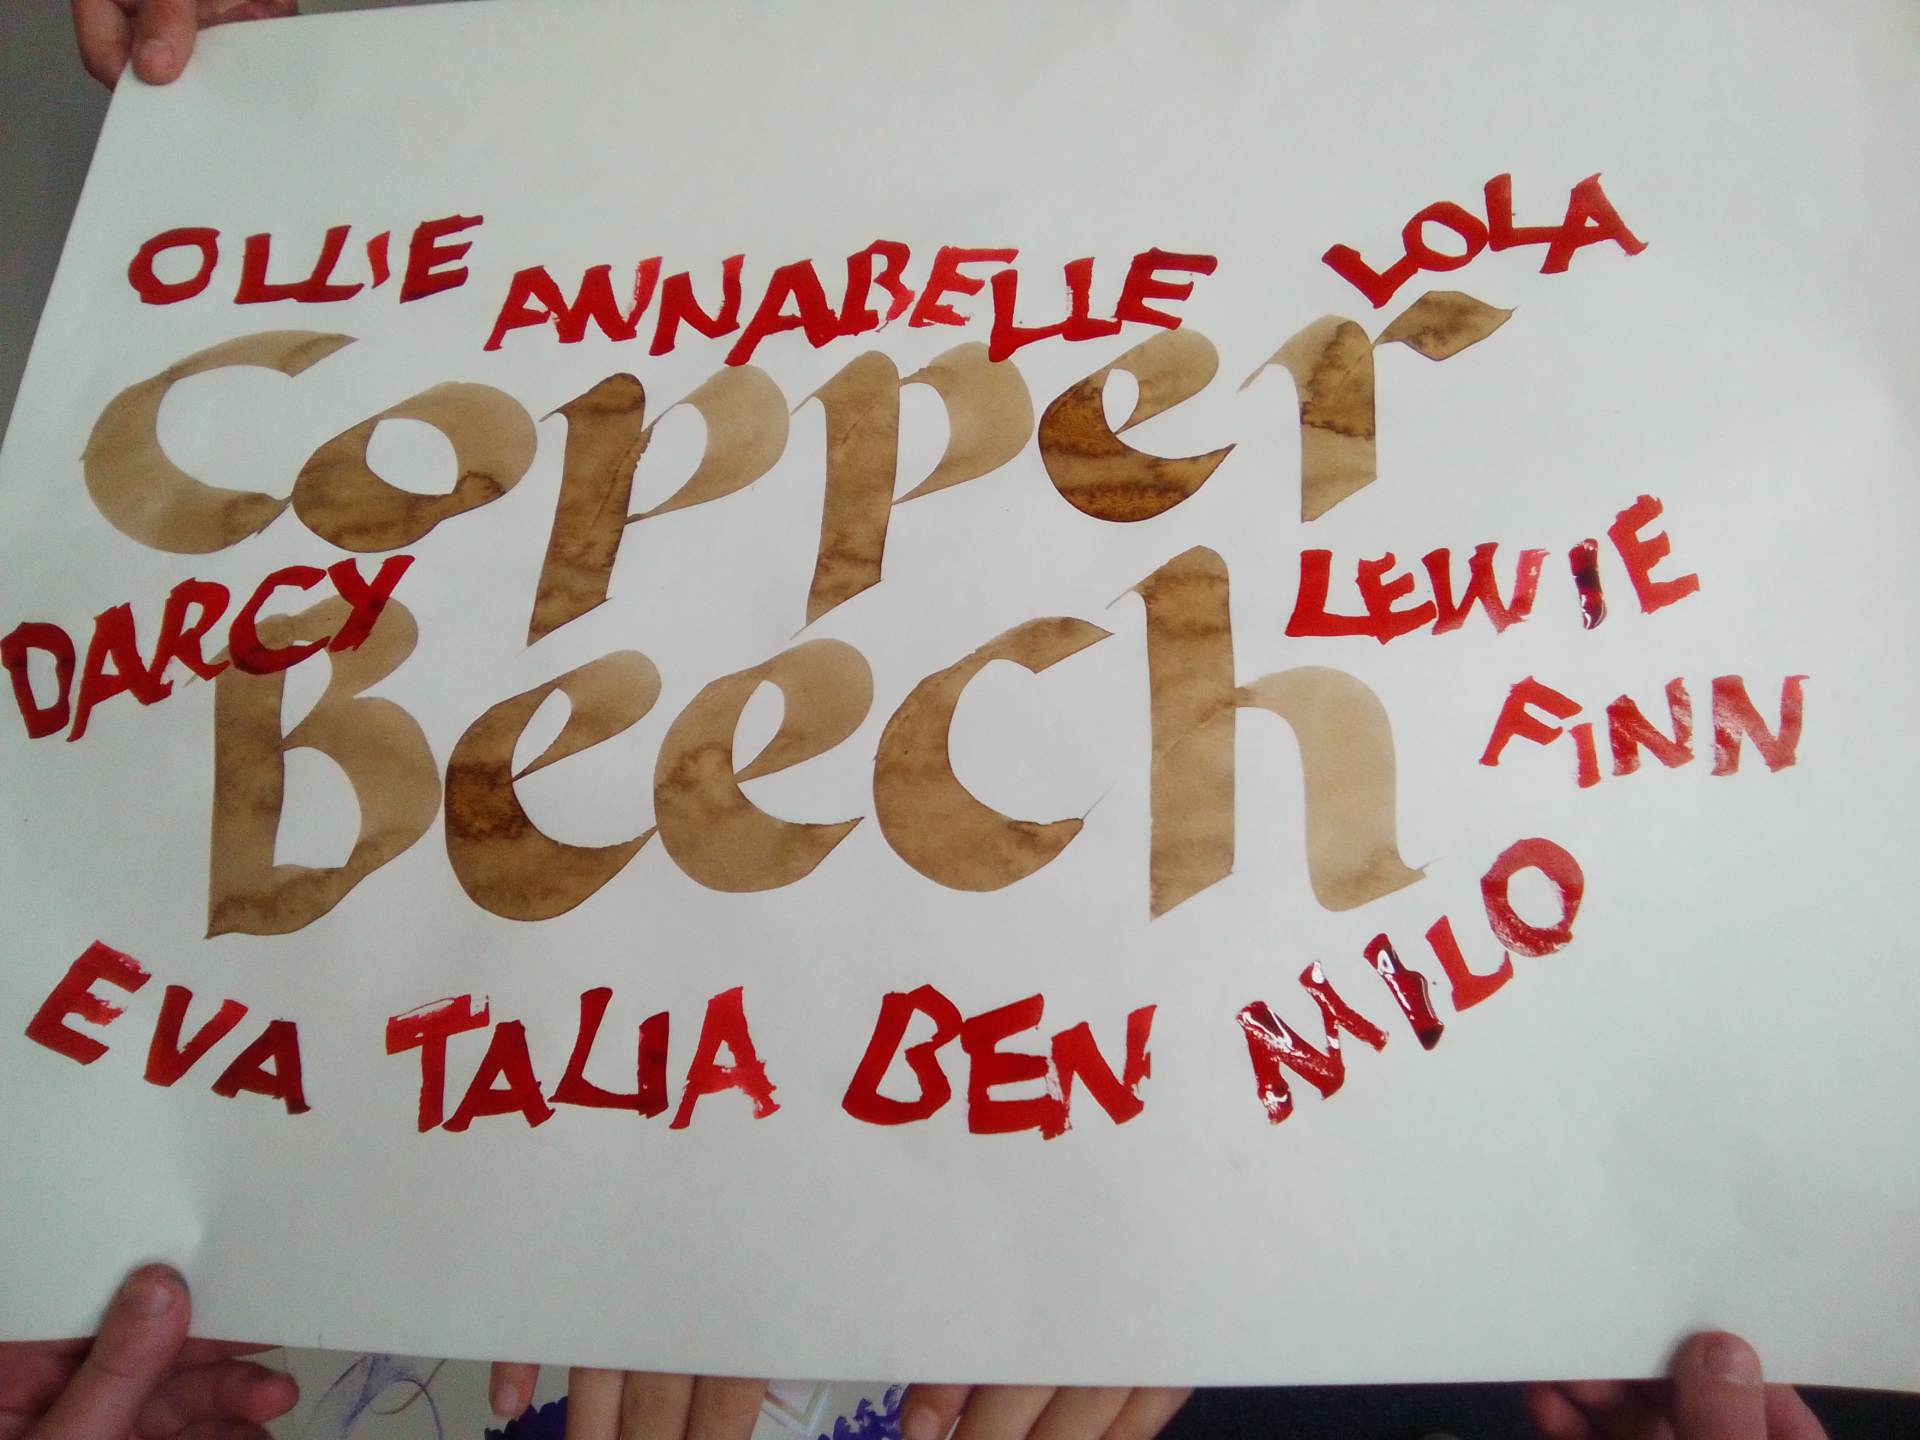 OLLIE
ANNABELLE
LOLA
Copper
DARCY
LEWIE
Beech
FiNN
EVA
TALIA
BEN
MILO